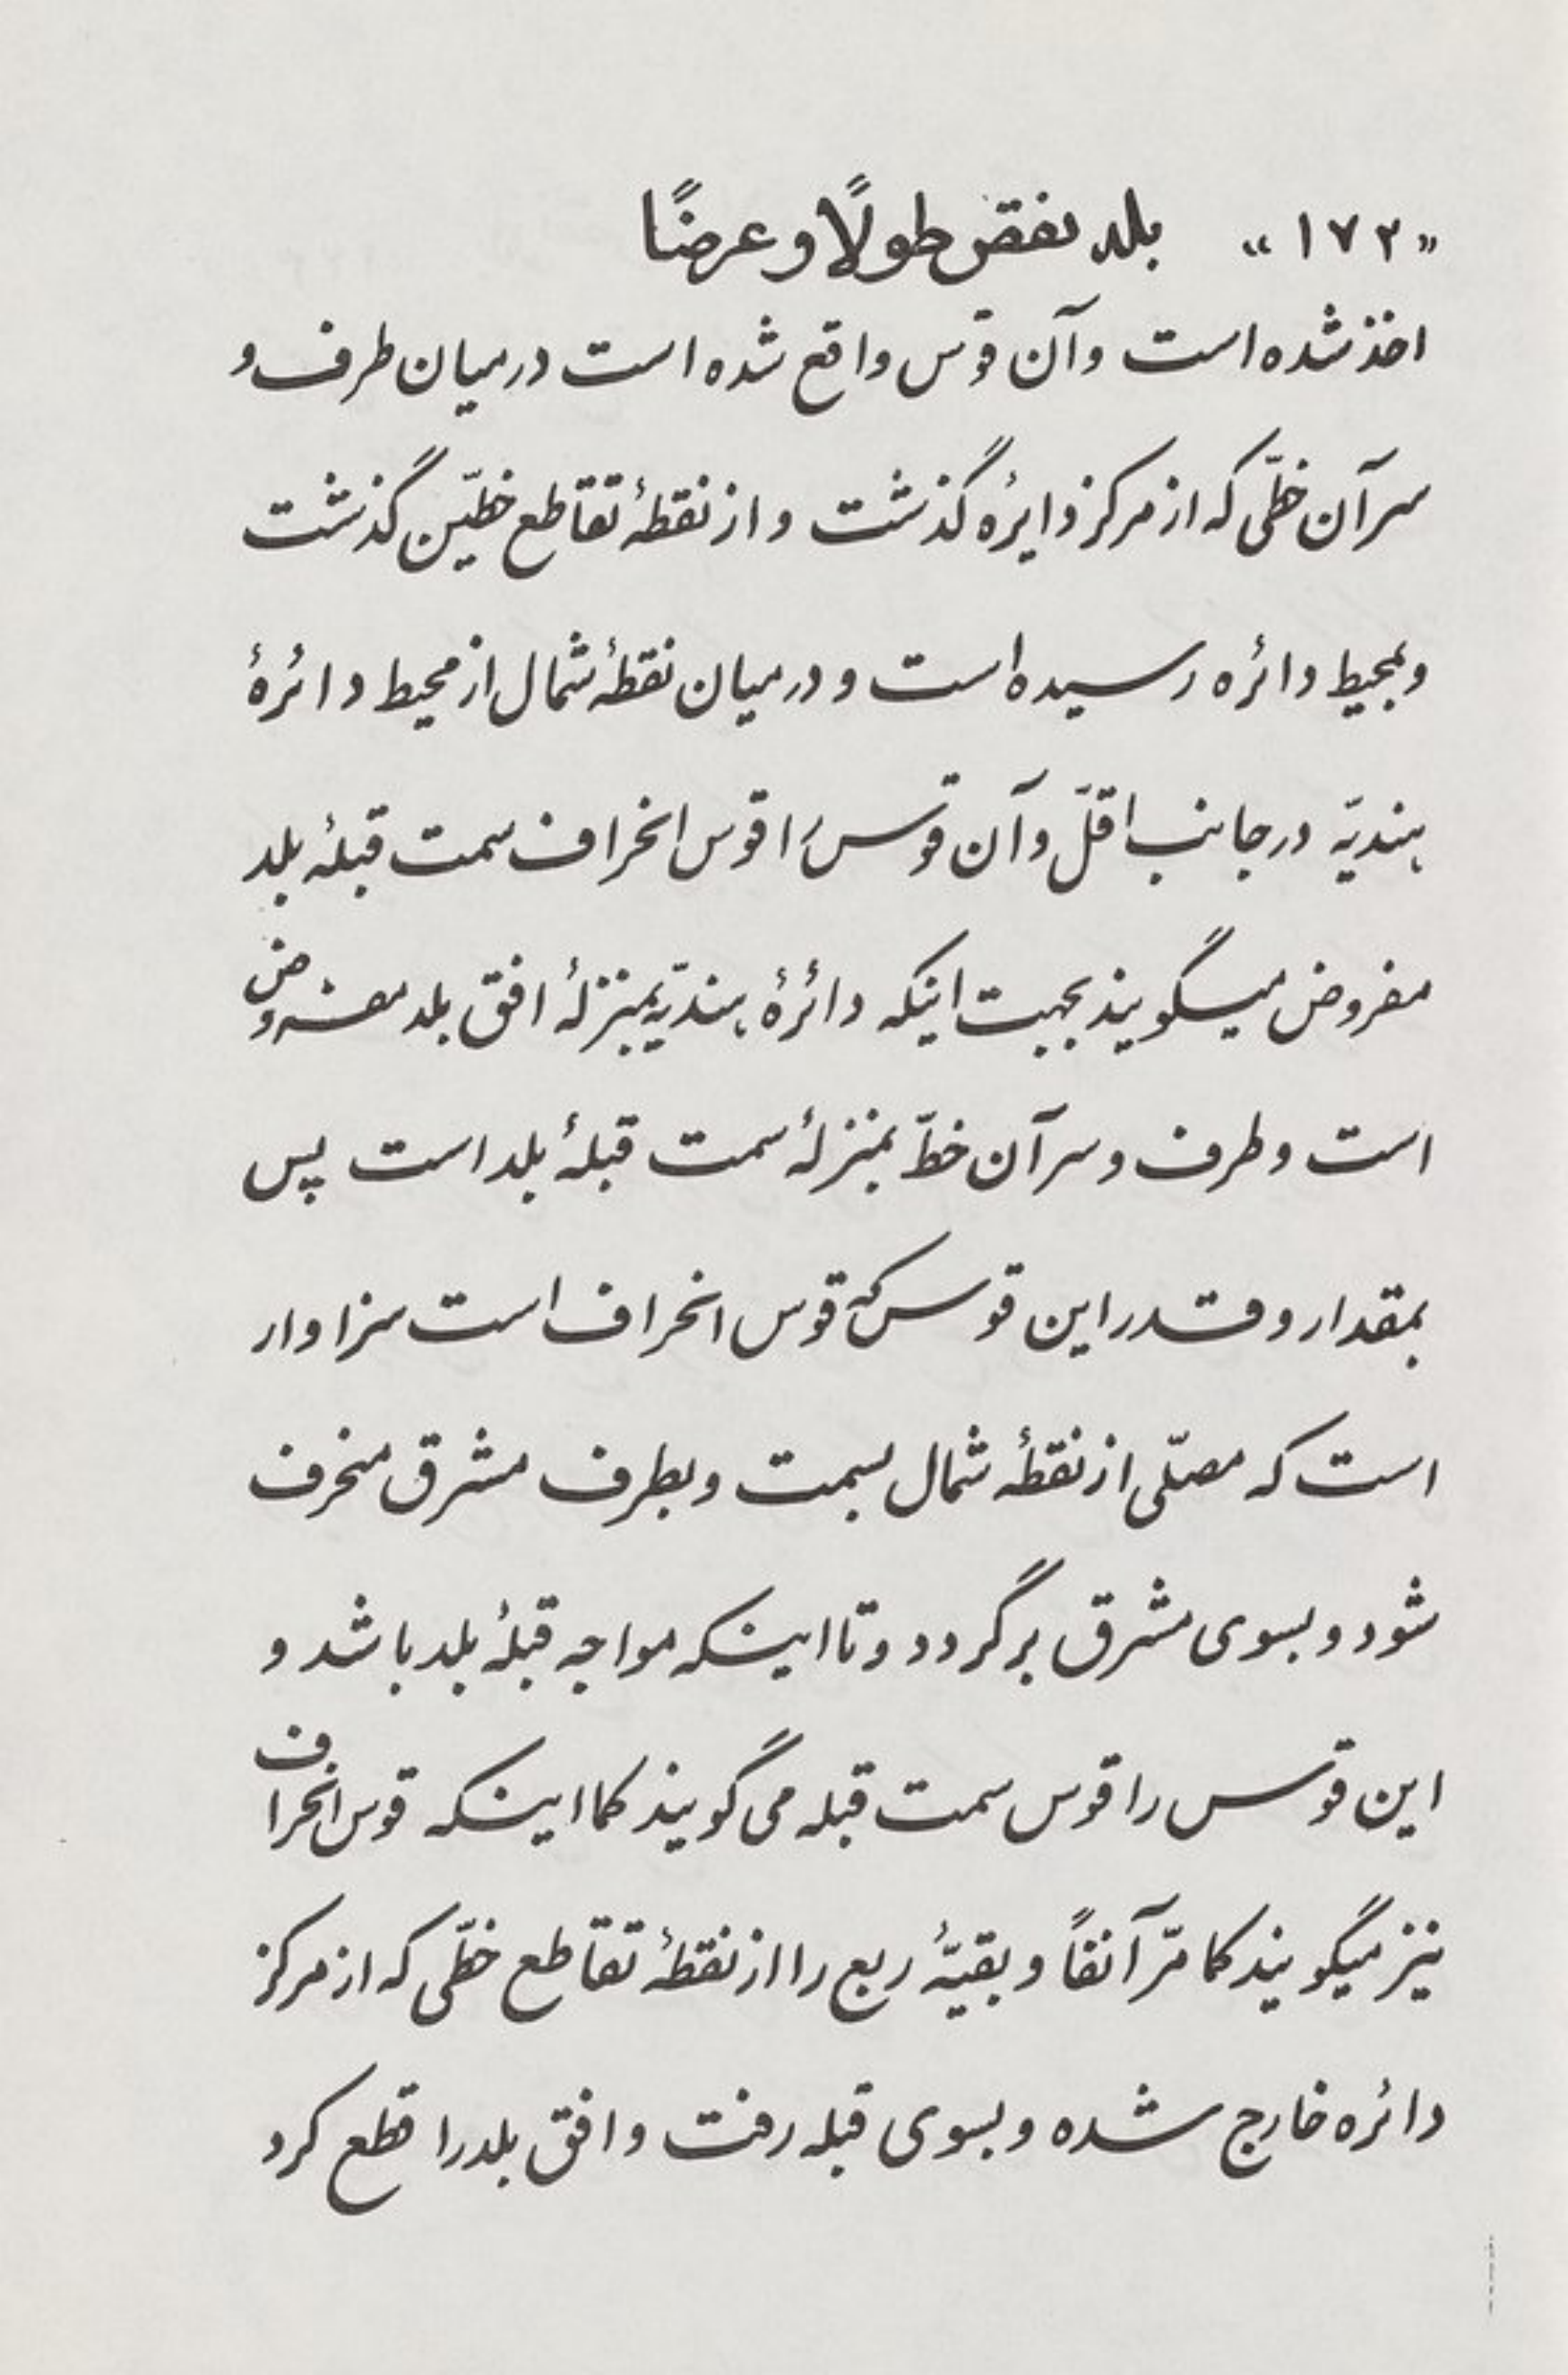 «۱۷۲» بلد نقص طولًا و عرضًا
اخذ شده است و آن قوس واقع شده است در میان طرف و
سر آن خطّی که از مرکز دایرهٔ گذشت و از نقطهٔ تقاطع خطّین گذشت
و بمحیط دائره رسیده است و در میان نقطهٔ شمال از محیط دائرهٔ
هندیّه در جانب اقلّ و آن قوس را قوس انحراف سمت قبلهٔ بلد
مفروض میگویند بجهت اینکه دائرهٔ هندیّه بمنزلهٔ افق بلد مفروض
است و طرف و سر آن خطّ بمنزلهٔ سمت قبلهٔ بلد است پس
بمقدار و قدر این قوس که قوس انحراف است سزاوار
است که مصلّی از نقطهٔ شمال بسمت و بطرف مشرق منحرف
شود و بسوی مشرق برگردد و تا اینکه مواجه قبلهٔ بلد باشد و
این قوس را قوس سمت قبله می گویند کما اینکه قوس انحراف
نیز میگویند کما مرّ آنفاً و بقیّهٔ ربع را از نقطهٔ تقاطع خطّی که از مرکز
دائره خارج شده و بسوی قبله رفت و افق بلد را قطع کرد